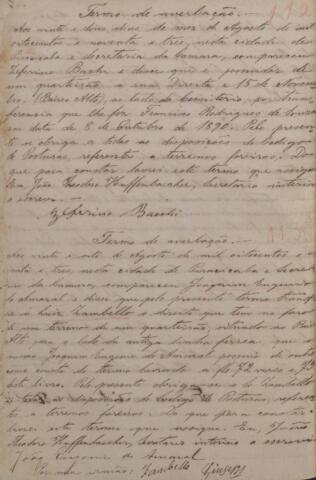 Termo de averbação.—
Aos vinte e dous dias do mez de Agosto de mil
oitocentos e noventa e tres, nesta cidade de
Piracicaba e Secretaria da Camara, compareceu
Zeferino Bacchi e disse que é possuidor de
um quarteirão, a rua Direita e 15 de Novem-
bro, (Bairro Alto), ao lado do Cemiterio por trans-
ferencia que lhe fez Francisco Rodrigues de Souza
em data de 8 de Outubro de 1892. Pelo presen-
te se obriga a todas as disposições do Codigo
de Posturas, referente a terrenos foreiros. Do
que para constar lavrei este termo que assigna.
Eu, João Theodoro Huffenbacher, Secretario interino
o escrevi.—
Zeferino Bacchi
Termo de averbação.—
Aos vinte e oito de Agosto de mil oitocentos e no-
venta e tres, nesta cidade de Piracicaba e Secreta-
ria da Camara, compareceu Joaquim Eugenio
do Amaral e disse que pelo presente termo transfe-
re a Luiz Zambello o direito que tem no foro
de um terreno de um quarteirão, situado no Bairro
Alto para o lado da antiga linha ferrea que o
mesmo Joaquim Eugenio do Amaral possuia
como consta do termo lavrado a fls 72 verso
deste livro. Pelo presente obriga-se o Sr Zambello
a todas as disposições do Codigo de Posturas, referen-
te a terrenos foreiros. Do que para constar
lavrei este termo que assigna. Eu, João
Theodoro Huffenbacher, Secretario interino o escrevi
João Eugenio do Amaral
Por meu irmão: Zambello Giuseppe